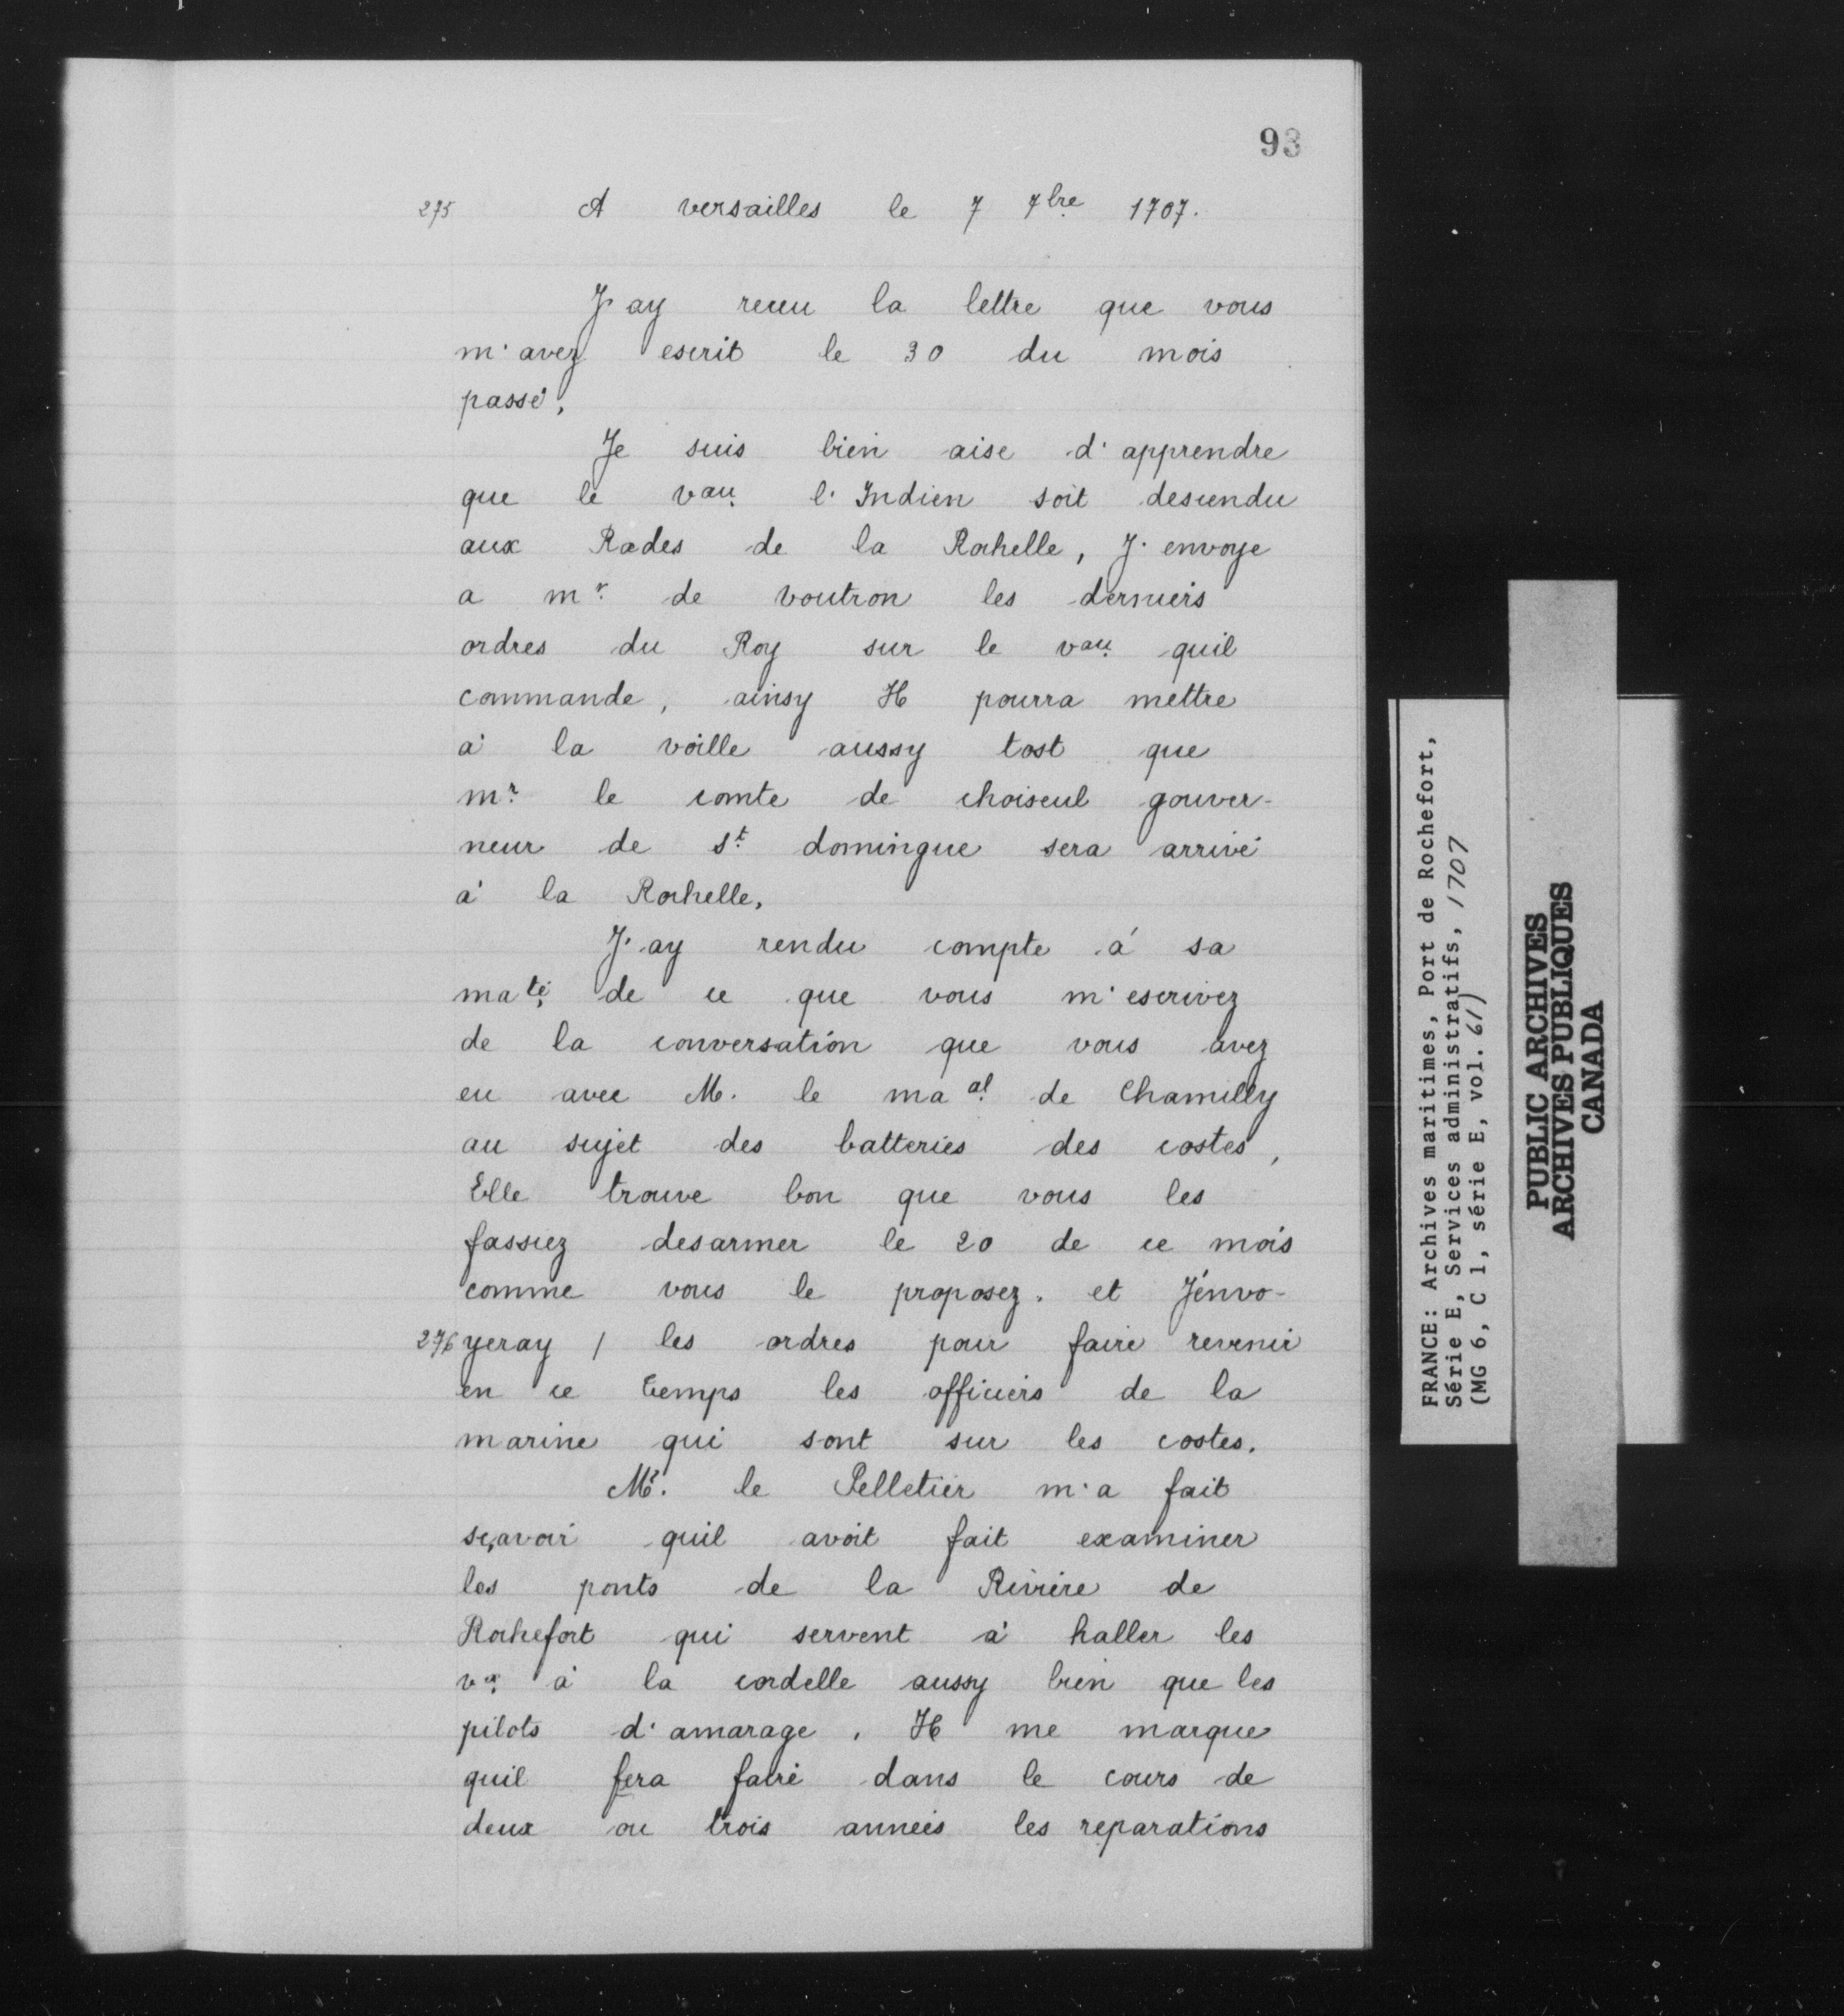 93
275 A versailles le 7 7bre 1707.
J'ay receu la lettre que vous
m'avez escrit le 30 du mois
passé,
Je suis bien aise d'apprendre
que le vau. l'Indien soit descendu
aux Rades de la Rochelle, J'envoye
a mr. de voutron les derniers
ordres du Roy sur le vau. quil
commande, ainsy Il pourra mettre
à la voille aussy tost que
mr. le comte de choiseul gouver-
neur de st. domingue sera arrivé
à la Rochelle,
J'ay rendu compte á sa
maté. de ce que vous m'escrivez
de la conversation que vous avez
eu avec M. le maal. de Chamilly
au sujet des batteries des costes,
Elle trouve bon que vous les
fassiez desarmer le 20 de ce mois
comme vous le proposez. et J'envo-
276 yeray / les ordres pour faire revenir
en ce temps les officiers de la
marine qui sont sur les costes.
Mr. le Pelletier m'a fait
sçavoir quil avoit fait examiner
les ponts de la Rivière de
Rochefort qui servent à haller les
vx. à la cordelle aussy bien que les
pilots d'amarage. Il me marque
quil fera faire dans le cours de
deux ou trois années les reparations
FRANCE: Archives maritimes, Port de Rochefort,
Série E, Services administratifs, 1707
(MG 6, C 1, série E, vol. 61)
PUBLIC ARCHIVES
ARCHIVES PUBLIQUES
CANADA